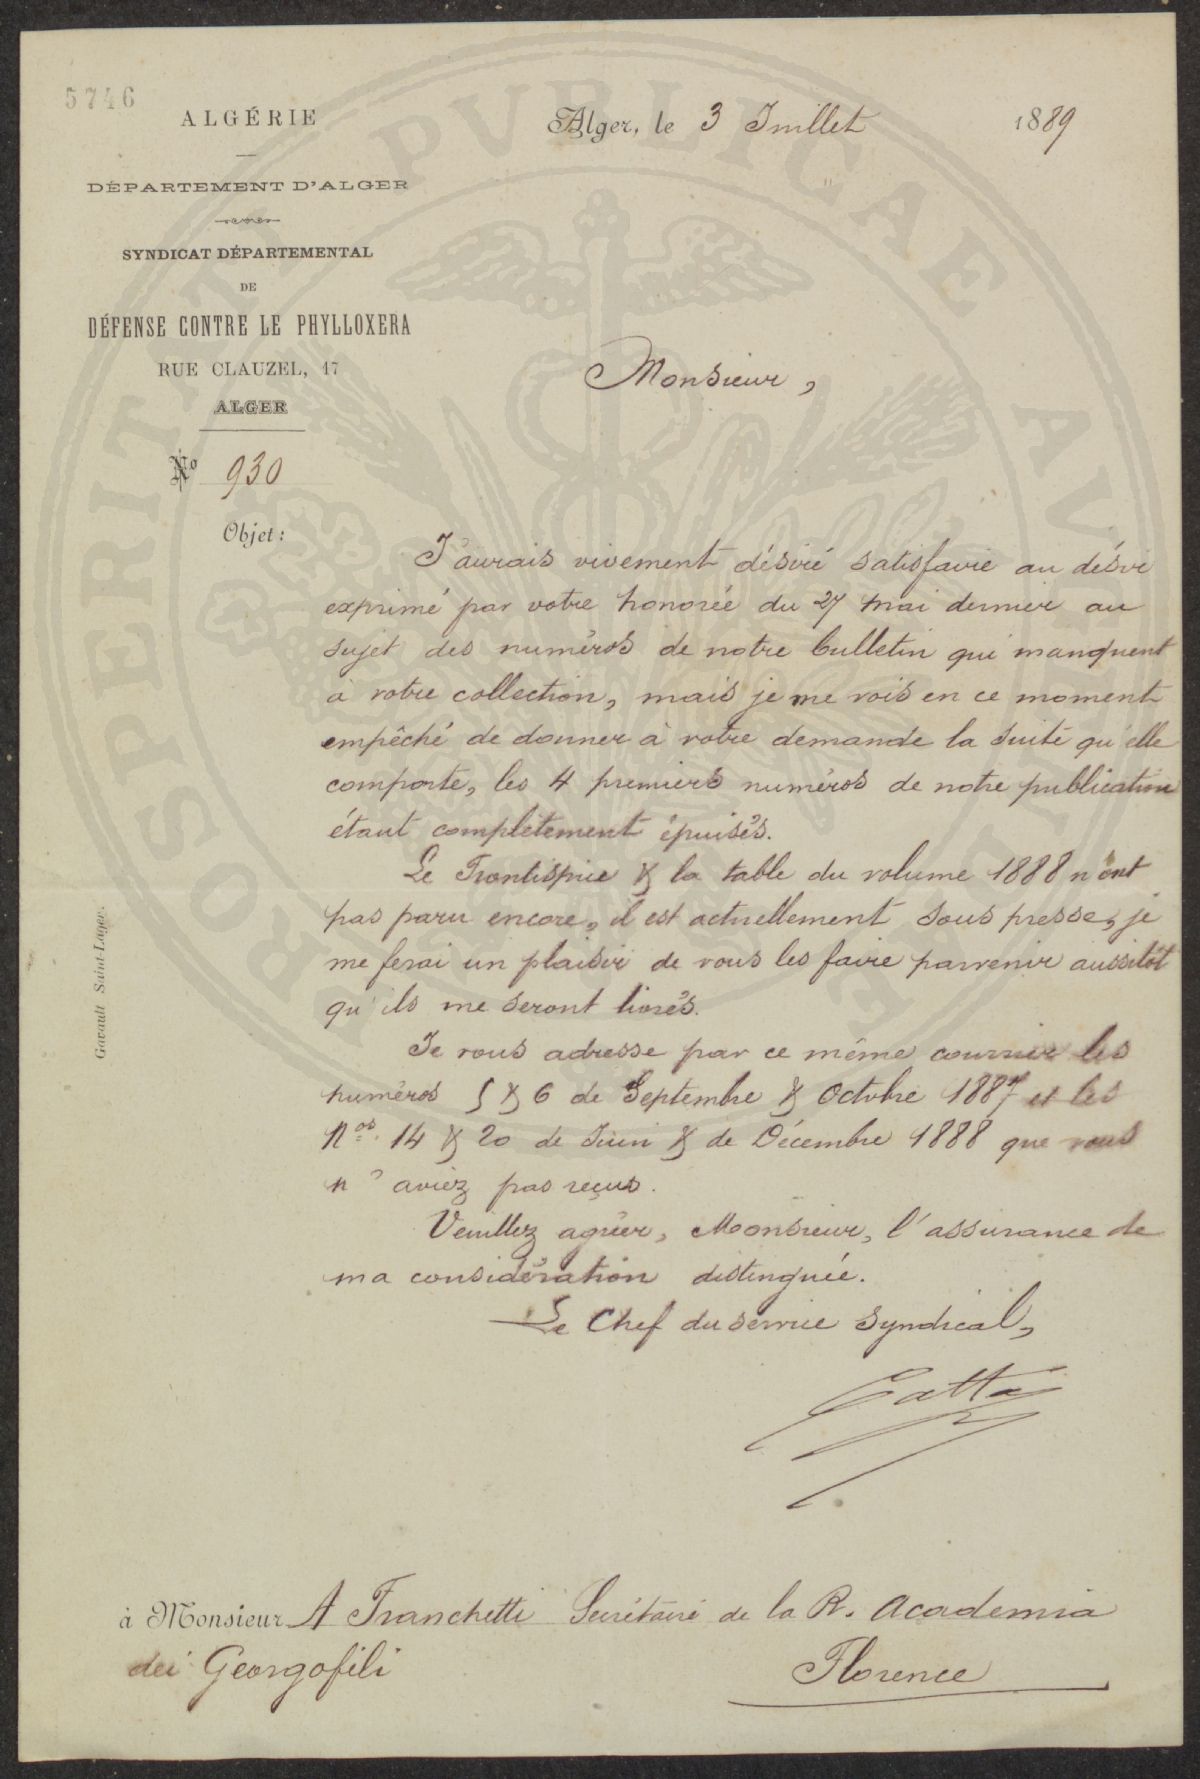 5746
ALGÉRIE
DÉPARTEMENT D'ALGER
SYNDICAT DÉPARTEMENTAL
DE
DÉFENSE CONTRE LE PHYLLOXERA
RUE CLAUZEL, 17
ALGER
No 930
Objet :
Alger, le 3 Juillet 1889
Monsieur,
J'aurais vivement désiré satisfaire au désir
exprimé par votre honorée du 27 mai dernier au
sujet des numéros de notre bulletin qui manquent
à votre collection, mais je me vois en ce moment
empêché de donner à votre demande la suite qu'elle
comporte, les 4 premiers numéros de notre publication
étant complètement épuisés.
Le Frontispice & la table du volume 1888 n'ont
pas paru encore, il est actuellement sous presse, je
me ferai un plaisir de vous les faire parvenir aussitôt
qu'ils me seront livrés.
Je vous adresse par ce même courrier les
numéros 5 & 6 de Septembre & Octobre 1887 et les
Nos. 14 & 20 de Juin & de Décembre 1888 que vous
n'aviez pas reçus.
Veuillez agréer, Monsieur, l'assurance de
ma considération distinguée.
Le Chef du service syndical,
à Monsieur A Franchetti Secrétaire de la R. Academia
dei Georgofili
Florence
Gavault Saint-Lager.
PROSPERITATI PVBLICAE AVGENDAE